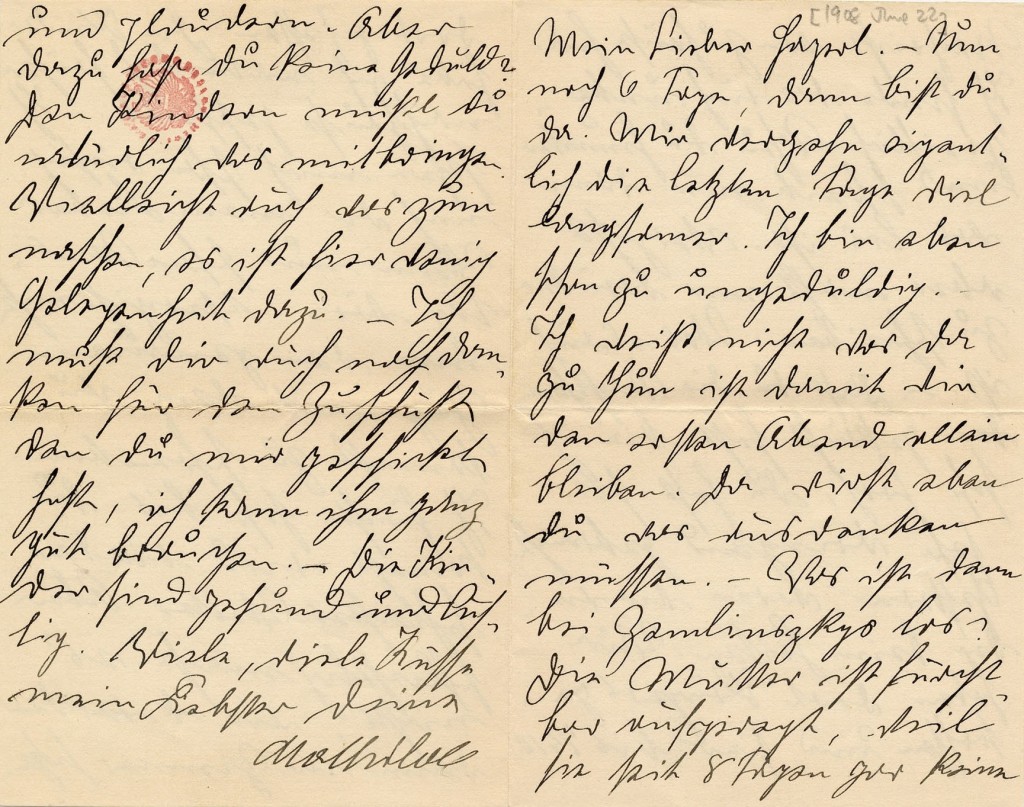 und plaudern. Aber
dazu hast du keine Geduld?
Den Kindern mußt du
natürlich was mitbringen.
Vielleicht auch was zum
naschen, es ist hier wenig
Gelegenheit dazu. – Ich
muß dir auch noch dan-
ken für den Zuschuß
den du mir geschickt
hast, ich kann ihm ganz
gut brauchen. – Die Kin-
der sind gesund und lus-
tig. Viele, viele Küsse
mein Liebster deine
Mathilde
[1908 June 22?
Mein lieber – Nun
noch 6 Tage, dann bist du
da. Mir vergehn eigent-
lich die letzten Tage viel
langsamer. Ich bin eben
schon zu ungeduldig. –
Ich weiß nicht was da
zu thun ist damit wir
den ersten Abend allein
bleiben. Da wirst eben
du was ausdenken
müssen. – Was ist denn
bei Zemlinszkys los?
Die Mutter ist furcht
bar aufgeregt, weil
sie seit 8 Tagen gar keine